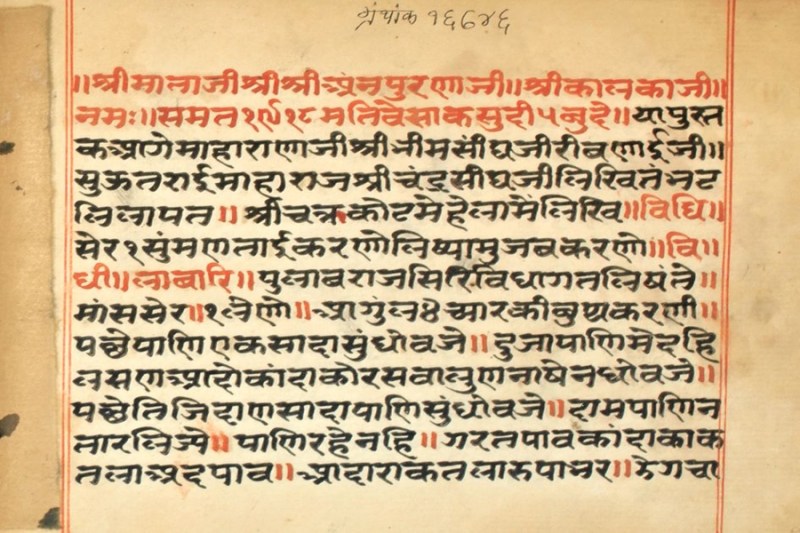 ग्रंथांक १६७४६
॥श्रीमाताजीश्रीश्रीअंनपुरणाजी॥श्रीकालकाजी॥
नमः॥समत१९१८मतिवैसाकसुदी५नुदे॥यापुस्त
कआगेमाहाराणाजीश्रीभीमसींघजीरीवणाईजी॥
सुऊतराईमाहाराजश्रीचंद्रसींघजीलिखितंभट
लिलापत॥श्रीचत्रकोटमेहेलामेंलिखि॥विधि॥
सेर१सुंमणताईकरणोलिष्यामुजबकरणो॥वि॥
धी॥लाबारि॥पुलाबराजसिरैविधागतलिषंते॥
मांससेर॥१लेणो॥आगुंल४आरकीबुथकरणी॥
पछेपाणिएकसादासुंधोवजे॥दुजापाणिमेदहि
लसणआदोकांदाकोरसवालुणनाषेनधोवजे॥
पछेतिजिदाणसादापाणिसुंधोवजे॥दामपाणिन
तारलिज्ये॥पाणिरहेनहि॥गरतपावकांदाकाक
तलाअदपाव॥आदाराकतलारुपाभर॥देगचा